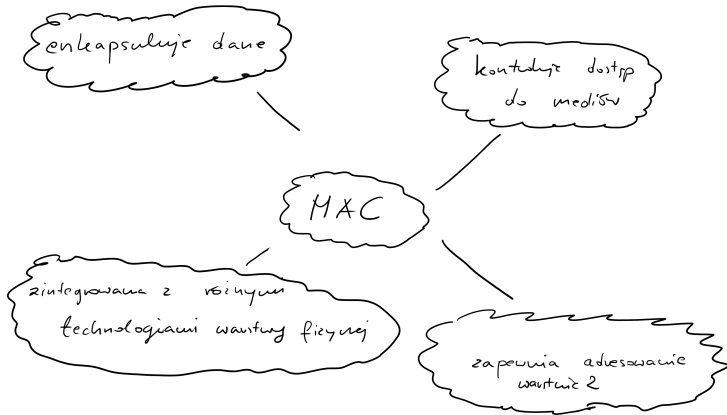 enkapsuluje dane
kontroluje dostęp
do mediów
MAC
zintegrowana z różnym
technologiami warstwy fizycznej
zapewnia adresowanie
warstwie 2